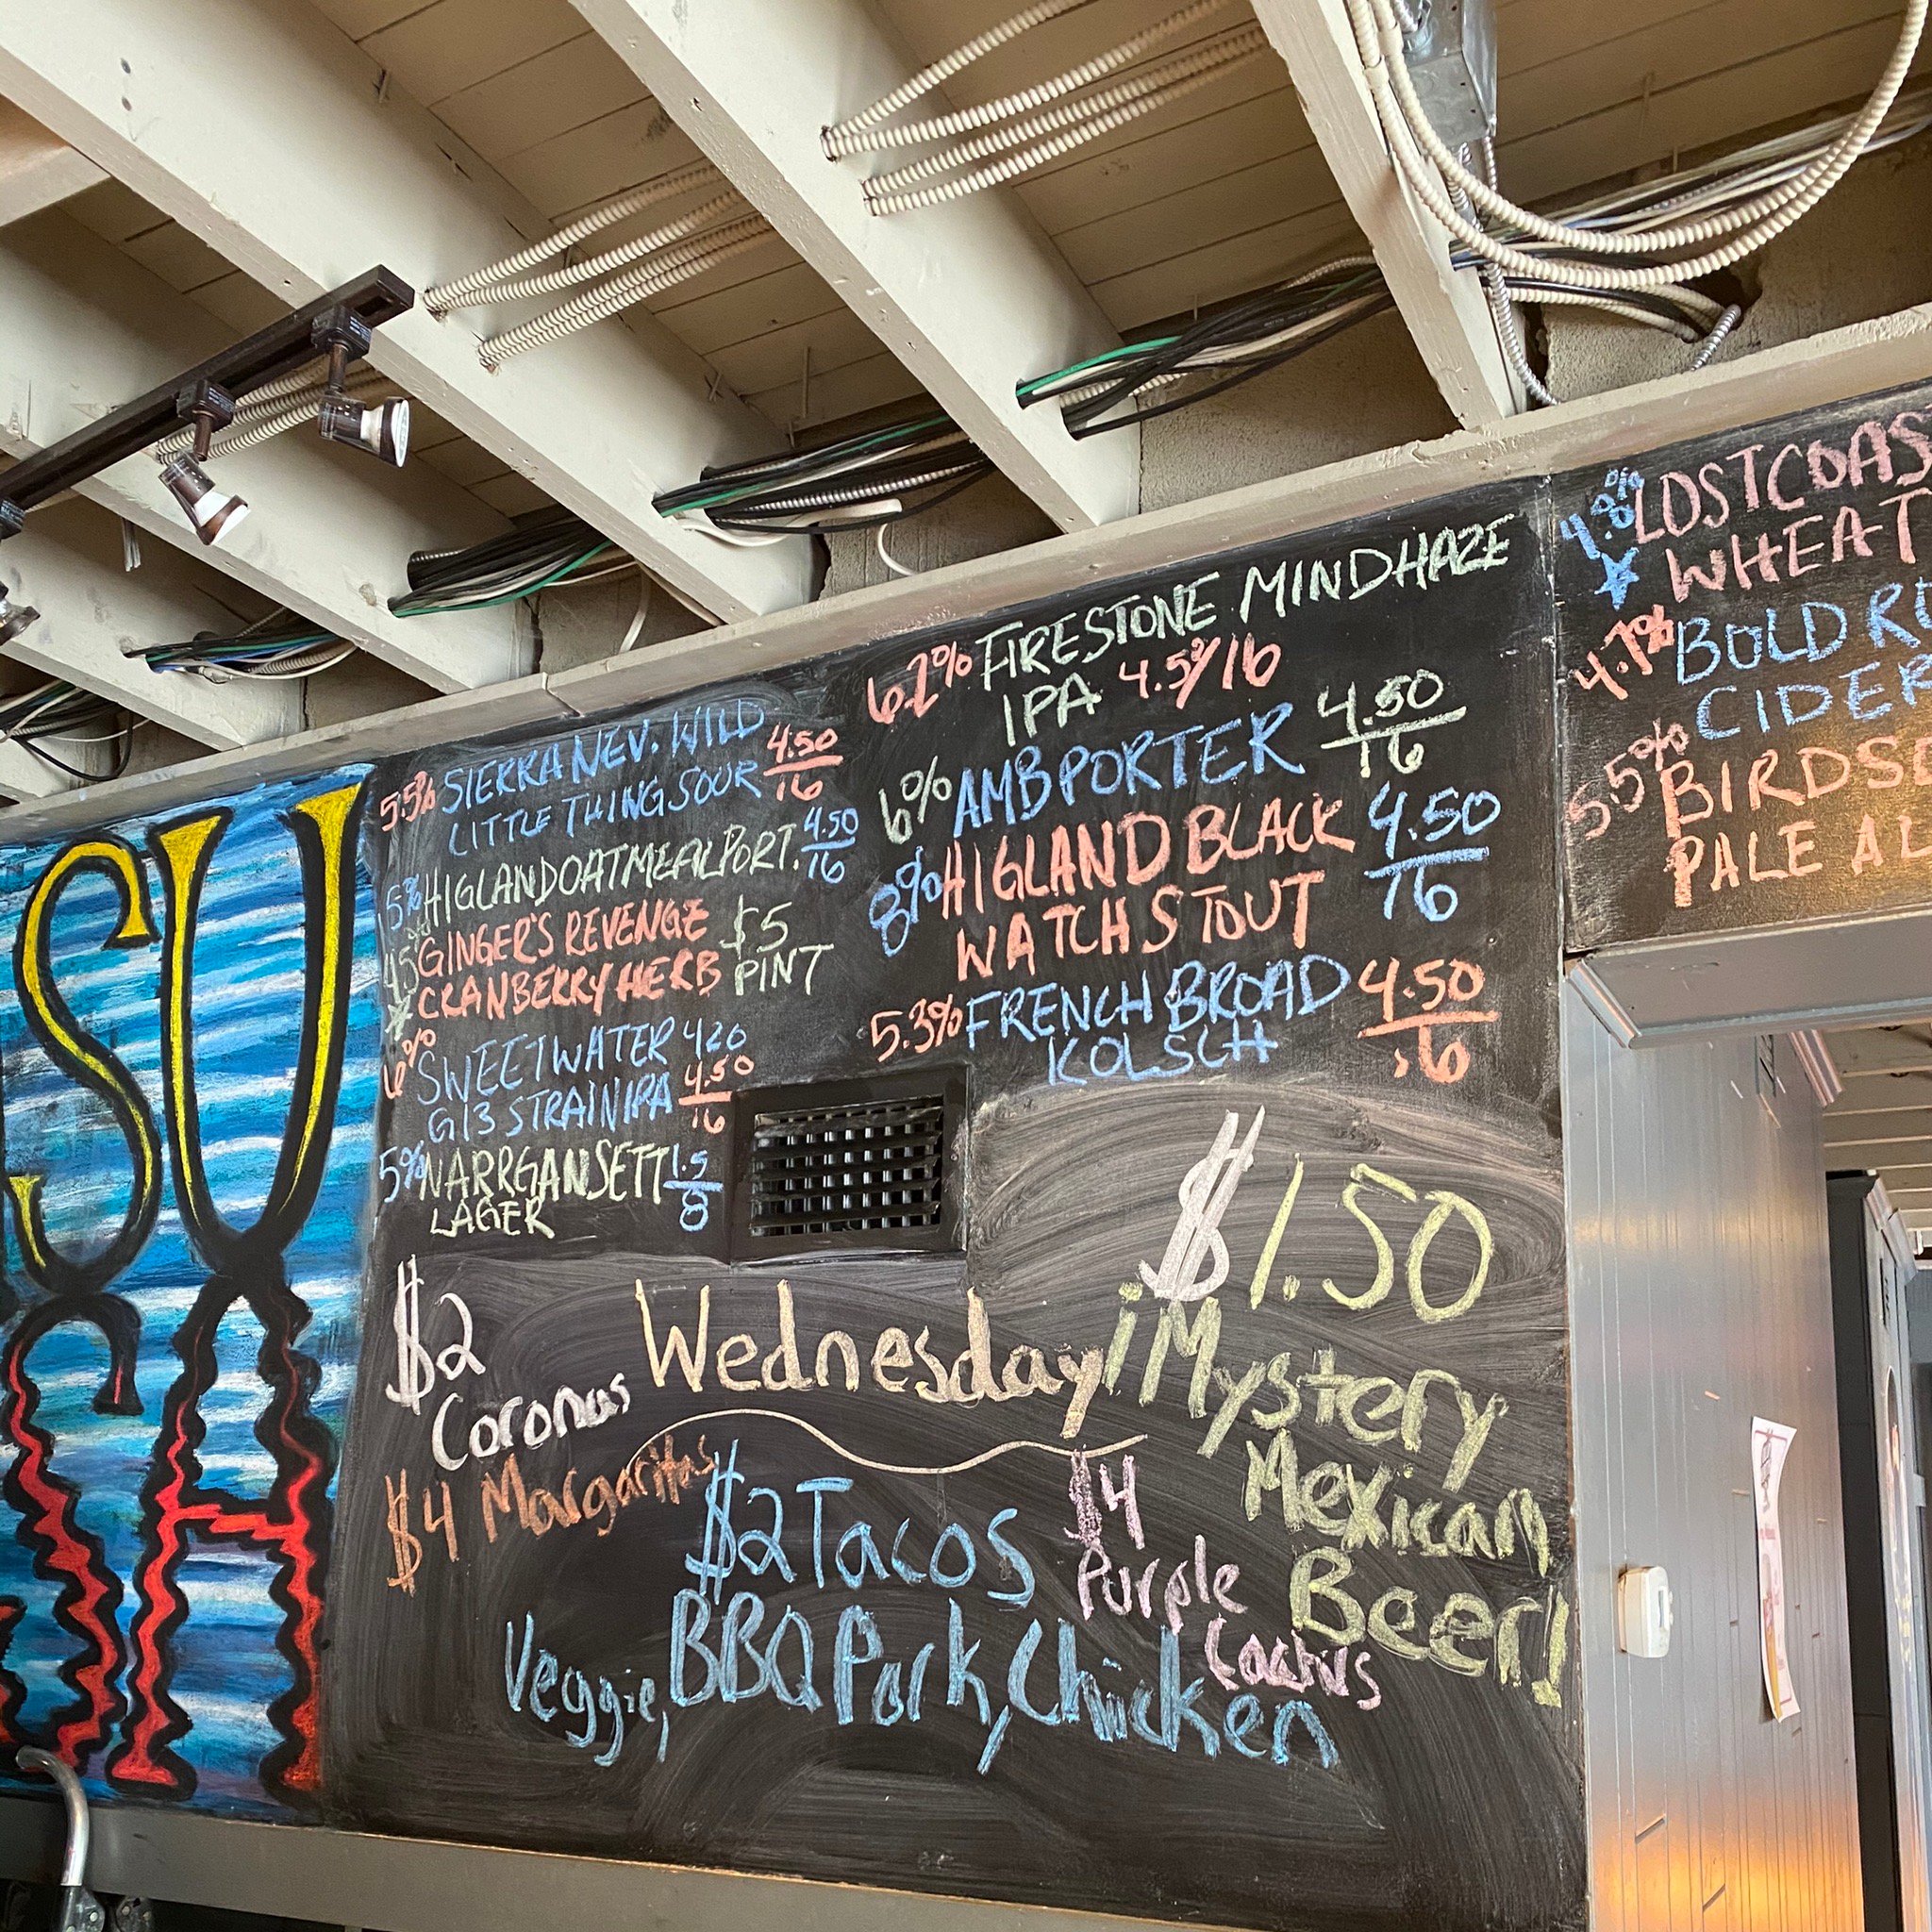 SU
CH
5.5% SIERRA NEV. WILD 4.50
LITTLE THING SOUR 16
5% HIGLAND OATMEAL PORT. 4.50
16
4.5% GINGER'S REVENGE $5
CRANBERRY HERB PINT
6% SWEETWATER 420
G13 STRAIN IPA 4.50
16
5% NARRGANSETT 1.5
LAGER 8
6.2% FIRESTONE MINDHAZE
IPA 4.50/16
6% AMB PORTER 4.50
16
8% HIGLAND BLACK 4.50
WATCH STOUT 16
5.3% FRENCH BROAD 4.50
KOLSCH 16
4.8% LOSTCOAS
WHEAT
4.7% BOLD
CIDER
5.5% BIRDS
PALE AL
$2
Coronas
$4 Margaritas
Wednesday
$2 Tacos
Veggie, BBQ Pork, Chicken
$4
Purple
Cactus
$1.50
¡Mystery
Mexican
Beer!